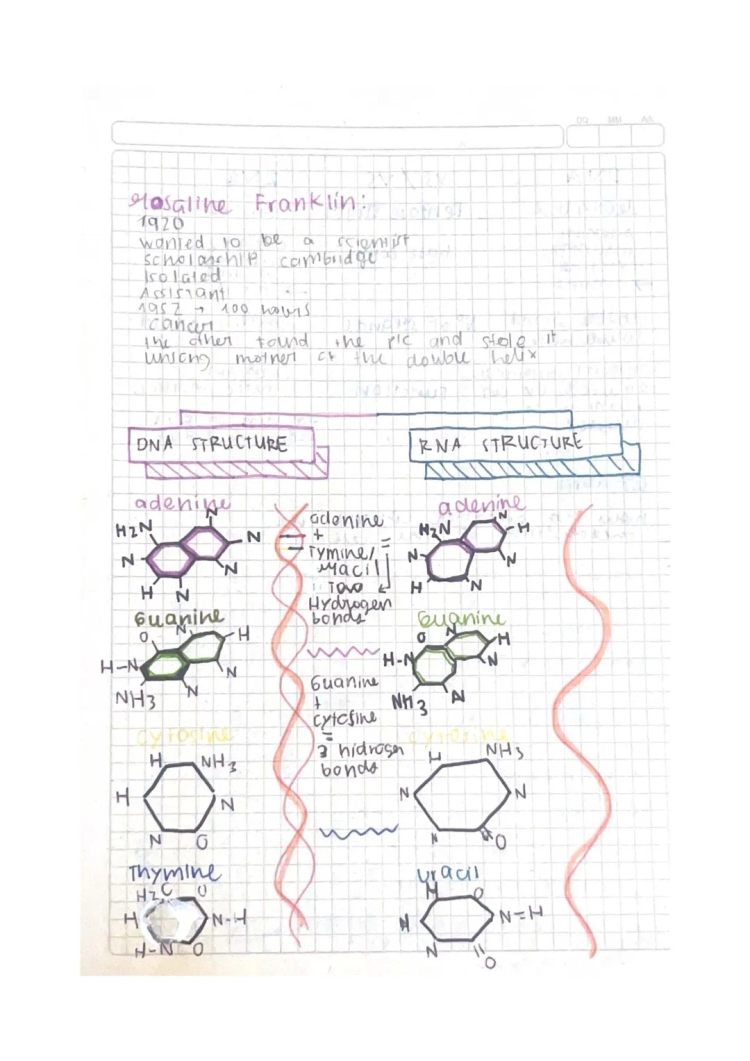 Rosaline Franklin:
1920
wanted to be a scientist
scholarship cambridge
Isolated
Assistant
1952 → 100 hours
cancer
the other found the pic and stole it
mother of the double helix
DNA STRUCTURE
RNA STRUCTURE
adenine
N
H2N
N
N
N
H
N
adenine
+
Tymine/
Uracil
=
Two
Hydrogen
bonds
adenine
N
H2N
H
N
N
H
N
Guanine
O
N
H
H-N
N
NH3
N
Guanine
+
cytosine
=
3 hidrogen
bonds
Guanine
O
N
H
H-N
N
NH3
N
cytosine
H
NH3
H
N
N
O
cytosine
H
NH3
N
N
N
O
Thymine
H2C
O
H
N-H
H-N
O
uracil
H
O
H
N=H
N
O